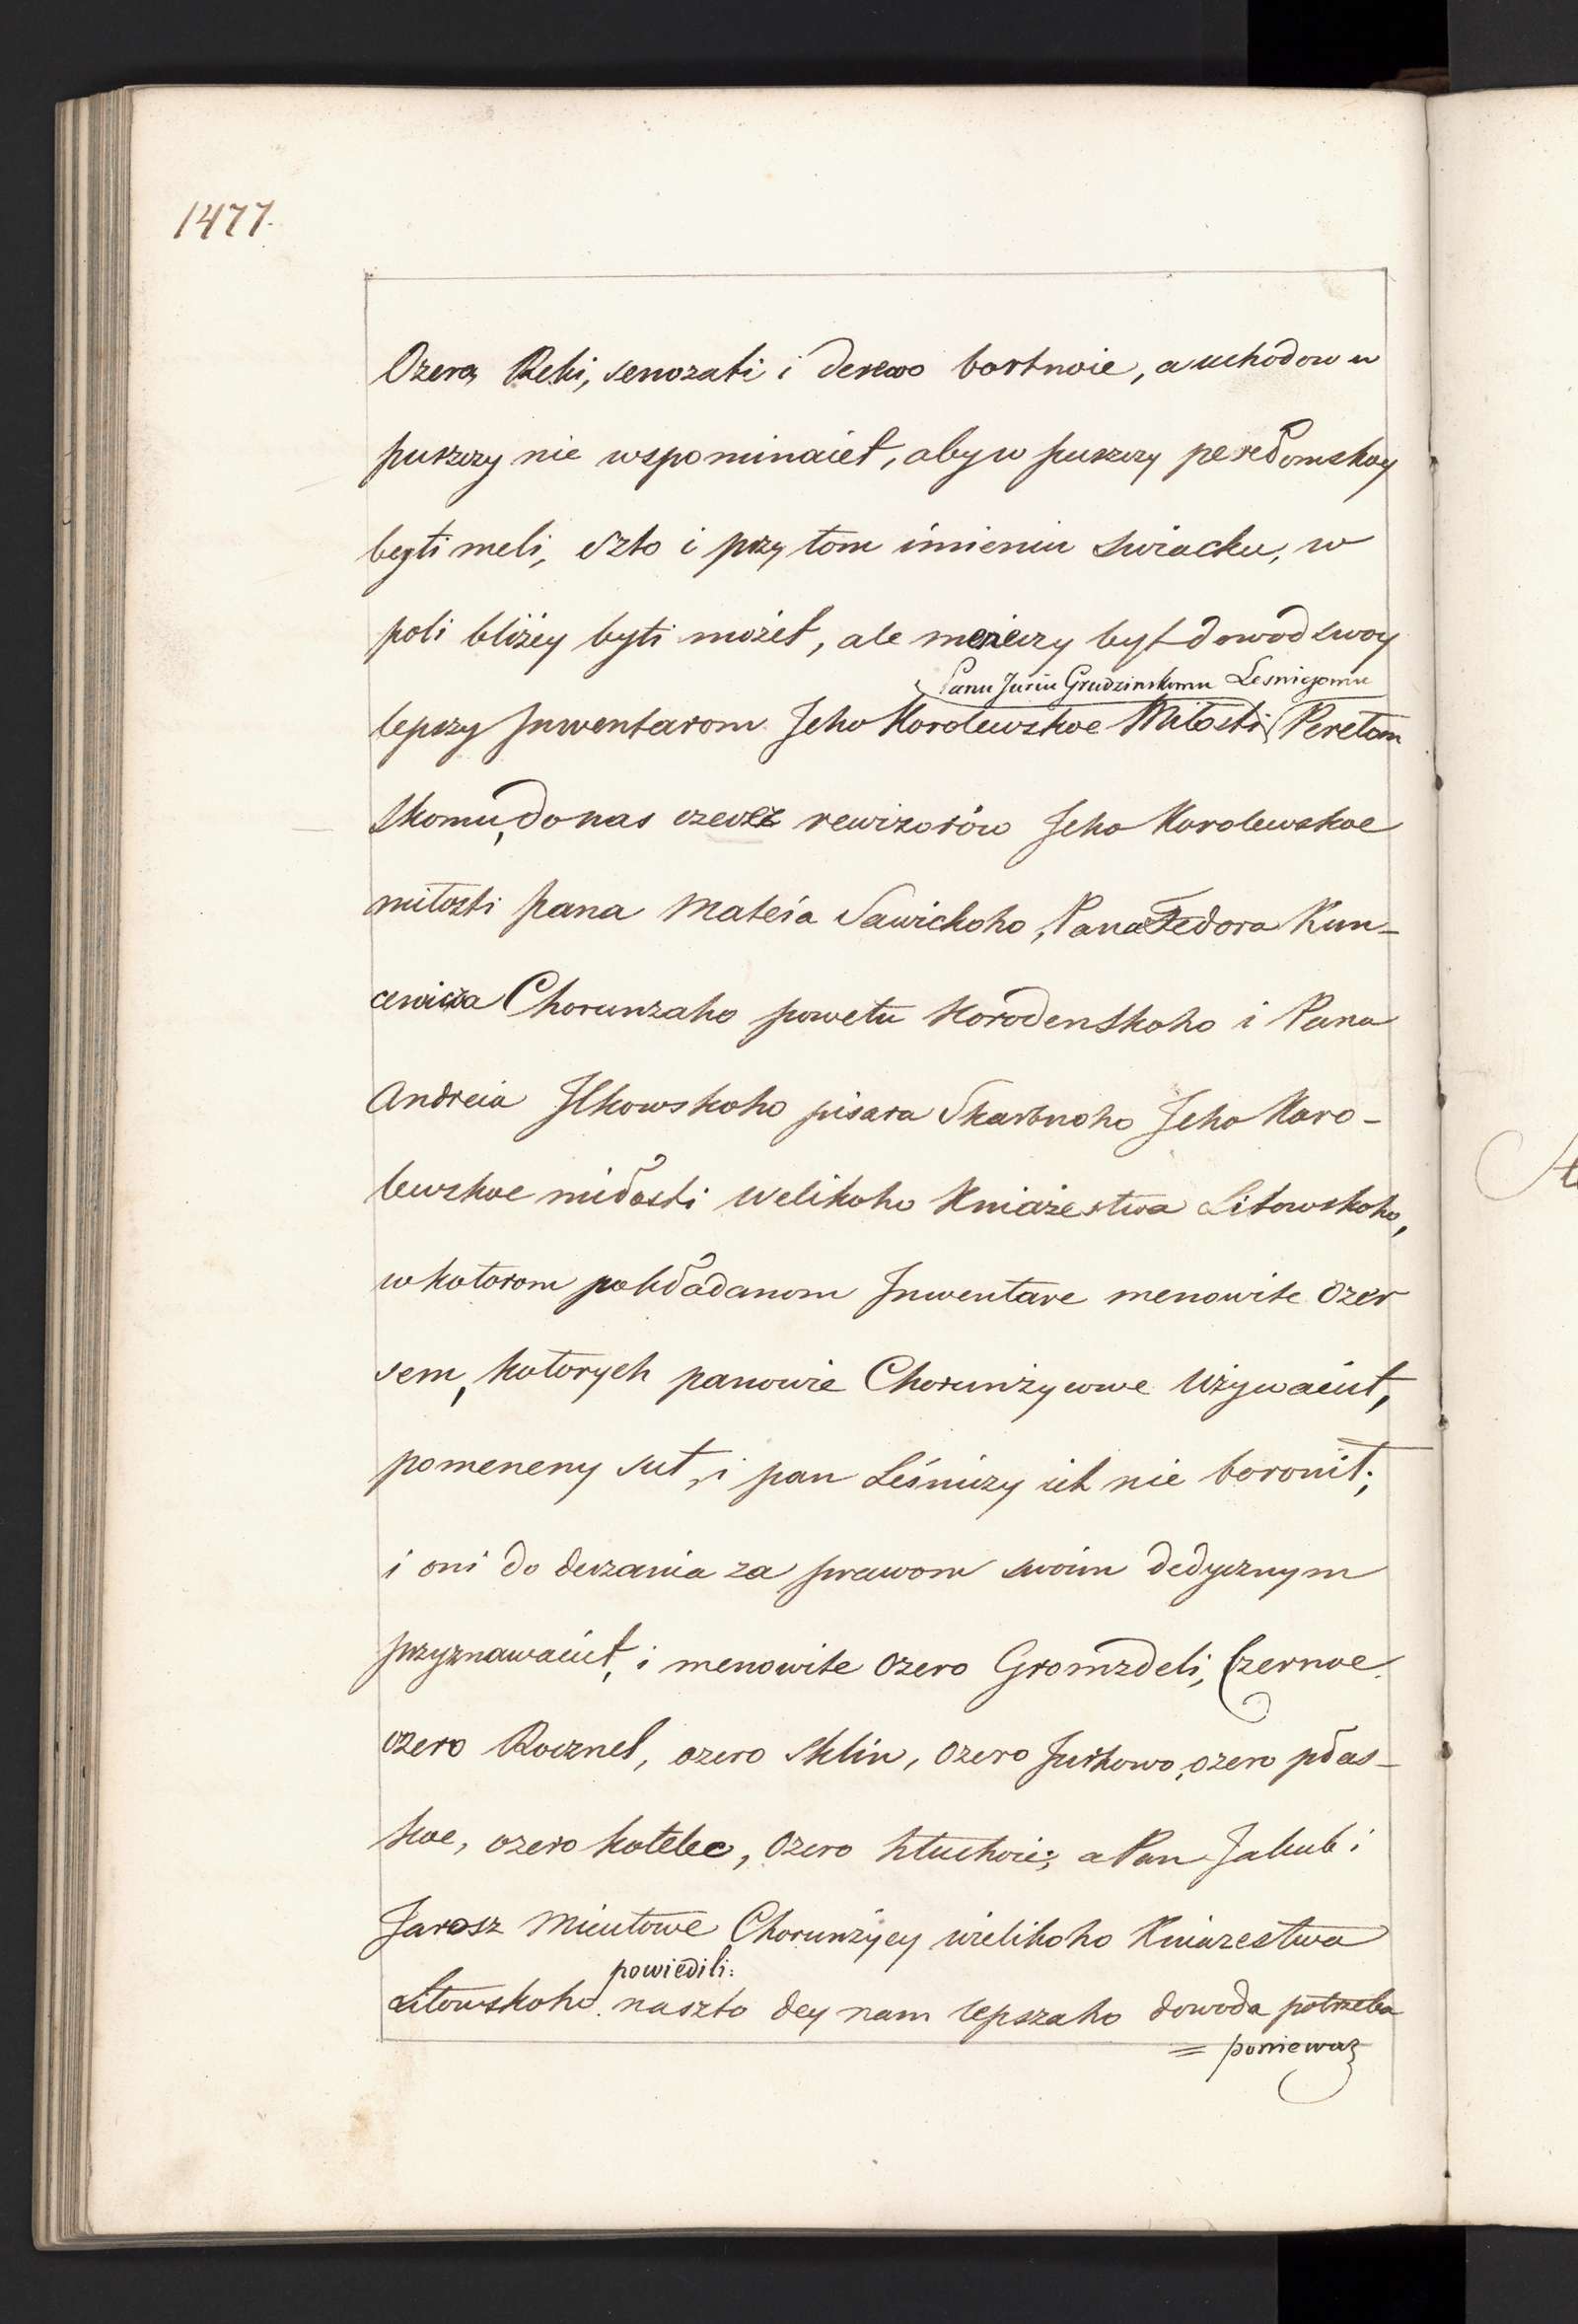 1477.
Ozera, Reki, senozati i derewo bortnoie, a uchodow w
puszczy nie wspominaiet, aby w puszczy perełomskoy
byti meli, szto i przy tom imieniu Swiacku, w
poli bliżey byti możet, ale meniczy był dowod swoy
Panu Juriu Grudzinskomu Lesniczomu
lepszy Inwentarom Jeho Korolewskoe Miłosti Perełom
skomu, do nas czerez rewizorów Jeho Korolewskoe
miłosti pana Mateia Sawickoho, Pana Fedora Kun-
cewicza Chorunzaho powetu Horodenskoho i Pana
Andreia Ilkowskoho pisara Skarbnoho Jeho Koro-
lewskoe miłosti Welikoho Kniażestwa Litowskoho,
w kotorom pokładanom Inwentare menowite Ozer
sem, kotorych panowie Chorunżyowe używaiut,
pomeneny sut, i pan Leśniczy ich nie boronit;
i oni do derżania za prawom swoim dedycznym
przyznawaiut, i menowite ozero Gromzdeli, Czernoe
ozero Rocznel, ozero Sklin, ozero Jurkowo, ozero płas-
koe, ozero kotelec, Ozero hłuchoie; a Pan Jakub i
Jarosz Mieutowe Chorunżyey wielikoho Kniazestwa
powiedili:
Litowskoho naszto dey nam lepszaho dowoda potrzeba
= poniewaz